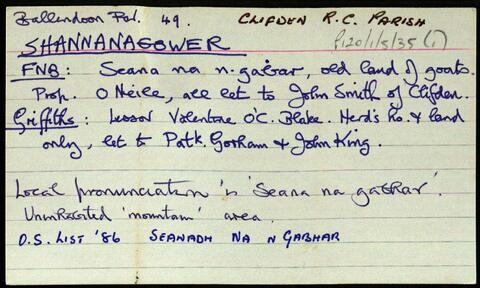 Ballendoon Pal. 49. CLIFDEN R.C. PARISH
SHANNANAGOWER p120/1/5/35 (1)
FNB: Seana na n-gabar, old land of goats.
Prop. O Neile, all let to John Smith of Clifden.
Griffiths: Lessor Valentine O'C. Blake. Herd's ho. & land
only, let to Patk. Gorham & John King.
Local pronunciation is 'Seana na gabhar'.
Uninhabited 'mountain' area.
O.S. LIST '86 SEANADH NA N GABHAR